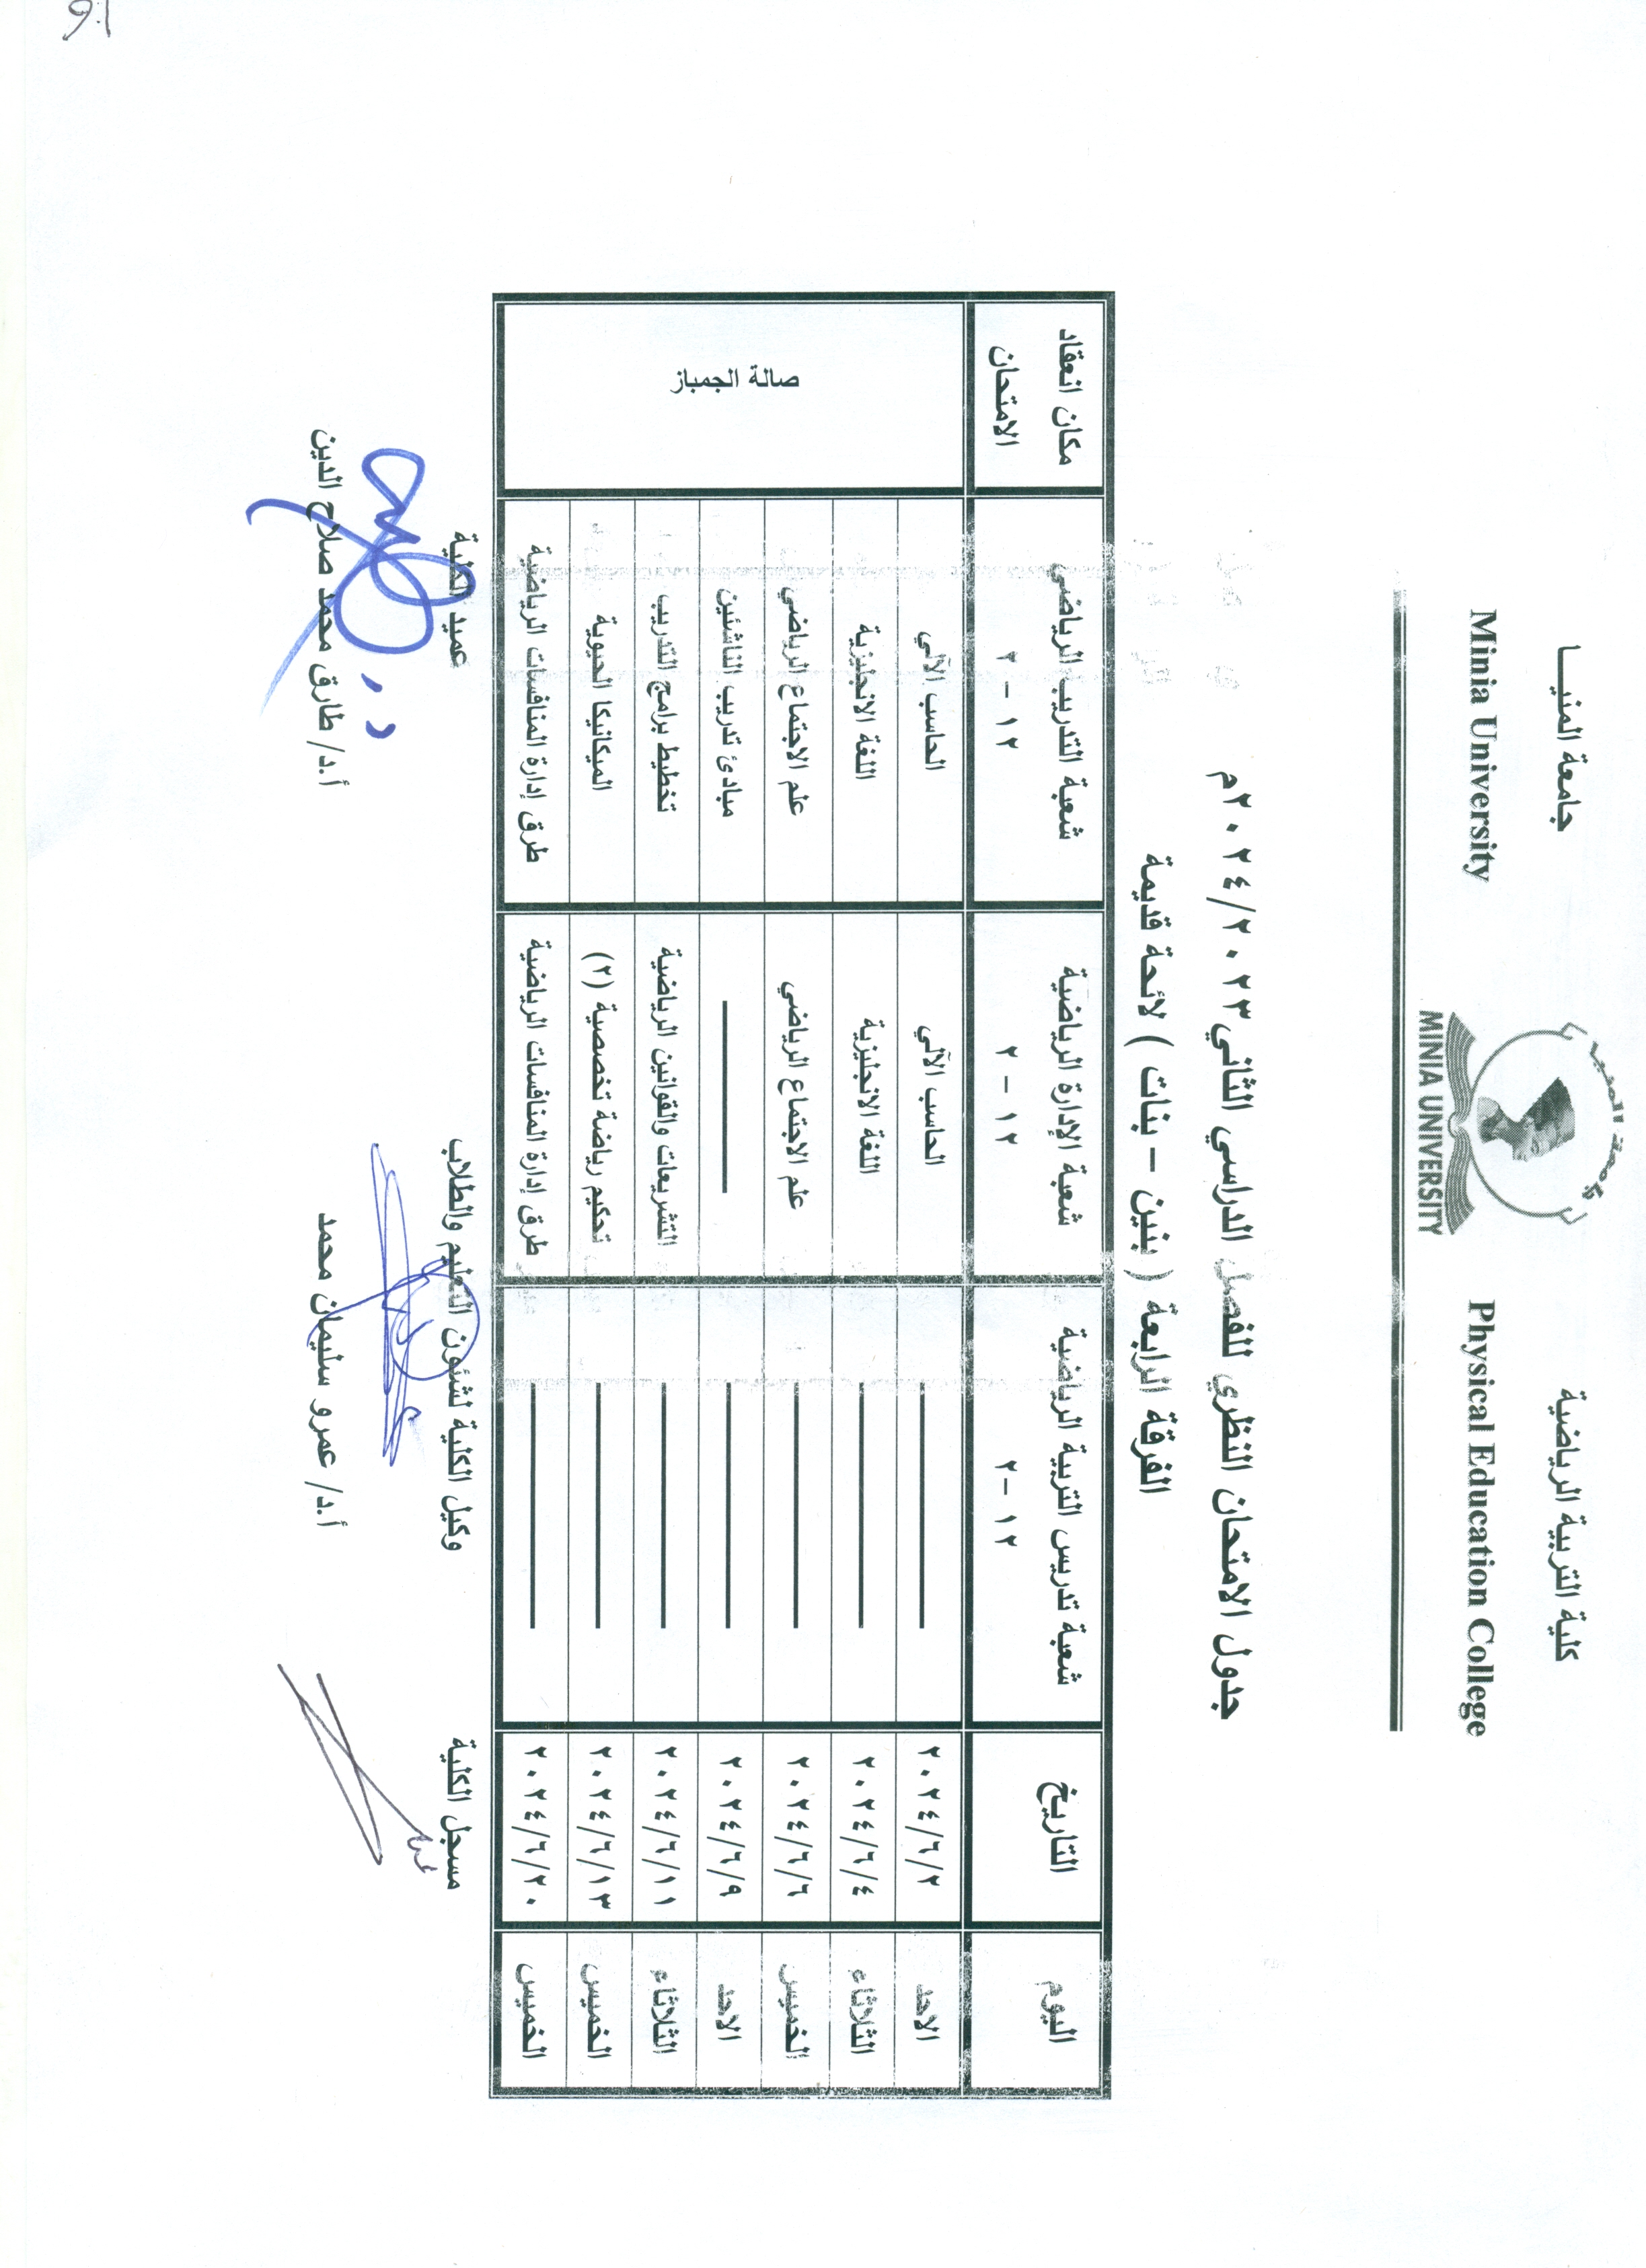 كلية التربية الرياضية
جامعة المنيا
Minia University
Physical Education College
جامعة المنيا
MINIA UNIVERSITY
جدول الامتحان النظري للفصل الدراسي الثاني ٢٠٢٤/٢٠٢٣م
الفرقة الرابعة ( بنين – بنات ) لائحة قديمة
اليوم التاريخ شعبة تدريس التربية الرياضية شعبة الإدارة الرياضية شعبة التدريب الرياضي مكان انعقاد
١٢ –٢ ١٢ – ٢ ١٢ – ٢ الامتحان
الاحد ٢٠٢٤/٦/٢ الحاسب الآلي الحاسب الآلي
الثلاثاء ٢٠٢٤/٦/٤ اللغة الانجليزية اللغة الانجليزية
الخميس ٢٠٢٤/٦/٦ علم الاجتماع الرياضي علم الاجتماع الرياضي
صالة الجمباز
الاحد ٢٠٢٤/٦/٩ مبادئ تدريب الناشئين
الثلاثاء ٢٠٢٤/٦/١١ التشريعات والقوانين الرياضية تخطيط برامج التدريب
الخميس ٢٠٢٤/٦/١٣ تحكيم رياضة تخصصية (٢) الميكانيكا الحيوية
الخميس ٢٠٢٤/٦/٢٠ طرق إدارة المنافسات الرياضية طرق إدارة المنافسات الرياضية
مسجل الكلية وكيل الكلية لشئون التعليم والطلاب عميد الكلية
أ.د/ عمرو سليمان محمد أ.د/ طارق محمد صلاح الدين